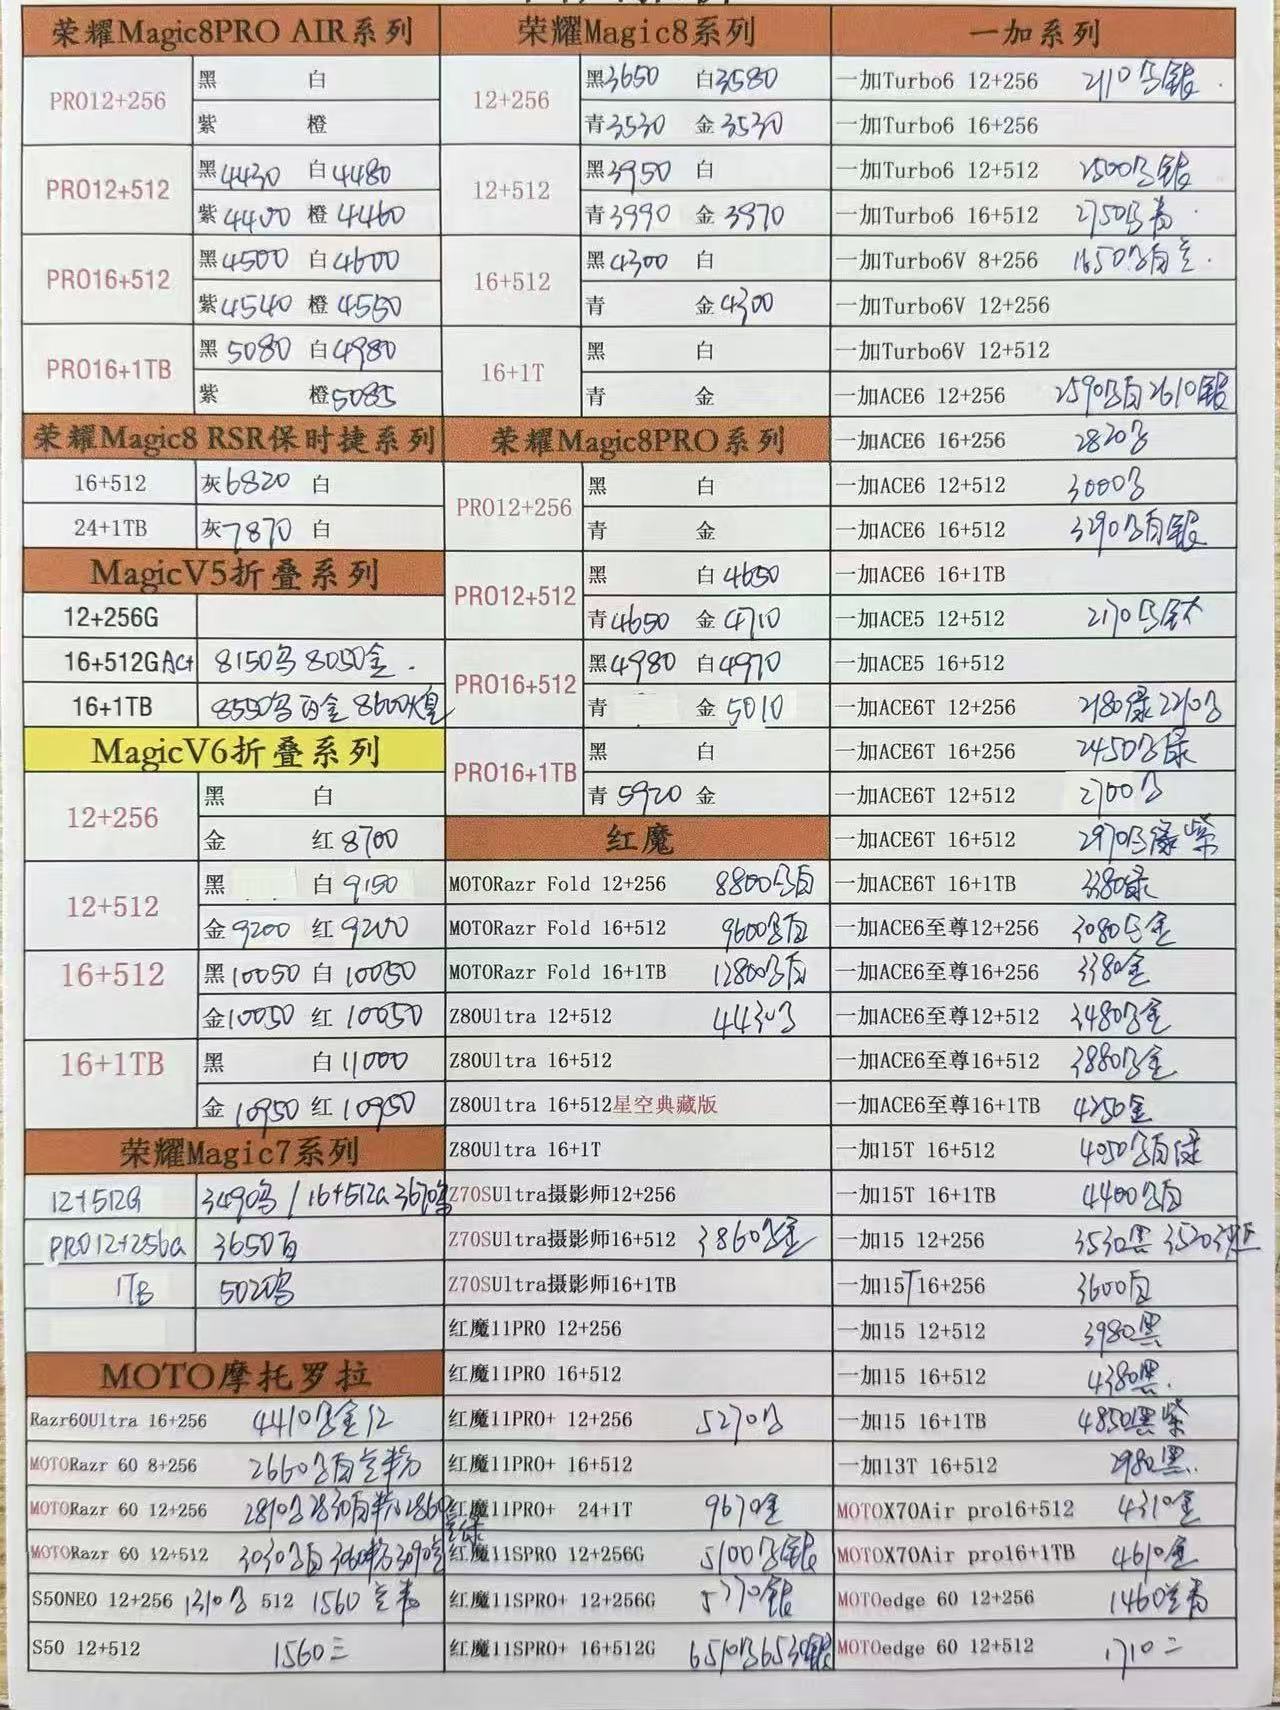 荣耀Magic8PRO AIR系列
PRO12+256 黑 白
紫 橙
PRO12+512 黑4430 白4480
紫4400 橙4460
PRO16+512 黑4500 白4600
紫4540 橙4550
PRO16+1TB 黑5080 白4980
紫 橙5085
荣耀Magic8 RSR保时捷系列
16+512 灰6820 白
24+1TB 灰7870 白
MagicV5折叠系列
12+256G
16+512G 8150 8050金
16+1TB 8550 白金 8600
MagicV6折叠系列
12+256 黑 白
金 红8700
12+512 黑 白9150
金9200 红9200
16+512 黑10050 白10050
金10050 红10050
16+1TB 黑 白11000
金10950 红10950
荣耀Magic7系列
12+512G 3490 / 16+512G 3670
PRO12+256G 3650白
1TB 5020
MOTO摩托罗拉
Razr60Ultra 16+256 4410 金红
MOTORazr 60 8+256 2660 白兰粉
MOTORazr 60 12+256 2810 2830白粉 2860
MOTORazr 60 12+512 3030 白 3060粉 3090
S50NEO 12+256 1310 512 1560 兰青
S50 12+512 1560三
荣耀Magic8系列
12+256 黑3650 白3580
青3530 金3530
12+512 黑3950 白
青3990 金3970
16+512 黑4300 白
青 金4300
16+1T 黑 白
青 金
荣耀Magic8PRO系列
PRO12+256 黑 白
青 金
PRO12+512 黑 白4650
青4650 金4710
PRO16+512 黑4980 白4970
青 金5010
PRO16+1TB 黑 白
青5920 金
红魔
MOTORazr Fold 12+256 8800 白
MOTORazr Fold 16+512 9600 白
MOTORazr Fold 16+1TB 12800 白
Z80Ultra 12+512 4430
Z80Ultra 16+512
Z80Ultra 16+512星空典藏版
Z80Ultra 16+1T
Z70SUltra摄影师12+256
Z70SUltra摄影师16+512 3860 金
Z70SUltra摄影师16+1TB
红魔11PRO 12+256
红魔11PRO 16+512
红魔11PRO+ 12+256 5270
红魔11PRO+ 16+512
红魔11PRO+ 24+1T 9670金
红魔11SPRO 12+256G 5100 银
红魔11SPRO+ 12+256G 5770银
红魔11SPRO+ 16+512G 6510 6530银
一加系列
一加Turbo6 12+256 2110 银
一加Turbo6 16+256
一加Turbo6 12+512 2500 银
一加Turbo6 16+512 2750 青
一加Turbo6V 8+256 1650 白兰
一加Turbo6V 12+256
一加Turbo6V 12+512
一加ACE6 12+256 2590 白 2610银
一加ACE6 16+256 2820
一加ACE6 12+512 3000
一加ACE6 16+512 3290 白银
一加ACE6 16+1TB
一加ACE5 12+512 2170 钛
一加ACE5 16+512
一加ACE6T 12+256 2180绿 2210
一加ACE6T 16+256 2450 绿
一加ACE6T 12+512 2700
一加ACE6T 16+512 2970 绿紫
一加ACE6T 16+1TB 3380绿
一加ACE6至尊12+256 3080 金
一加ACE6至尊16+256 3380金
一加ACE6至尊12+512 3480 金
一加ACE6至尊16+512 3880 金
一加ACE6至尊16+1TB 4250金
一加15T 16+512 4050 白绿
一加15T 16+1TB 4400 白
一加15 12+256 3530黑 3520
一加15T16+256 3600白
一加15 12+512 3980黑
一加15 16+512 4380黑
一加15 16+1TB 4850黑紫
一加13T 16+512 2980黑
MOTOX70Air pro16+512 4310金
MOTOX70Air pro16+1TB 4610金
MOTOedge 60 12+256 1460兰青
MOTOedge 60 12+512 1710二